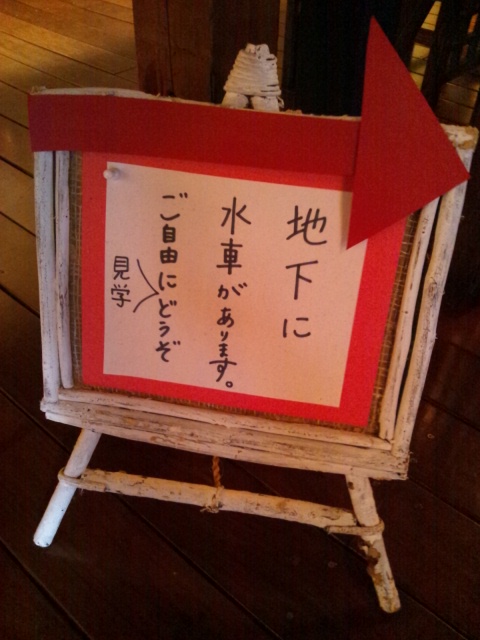 地下に
水車があります。
ご自由にどうぞ
見学